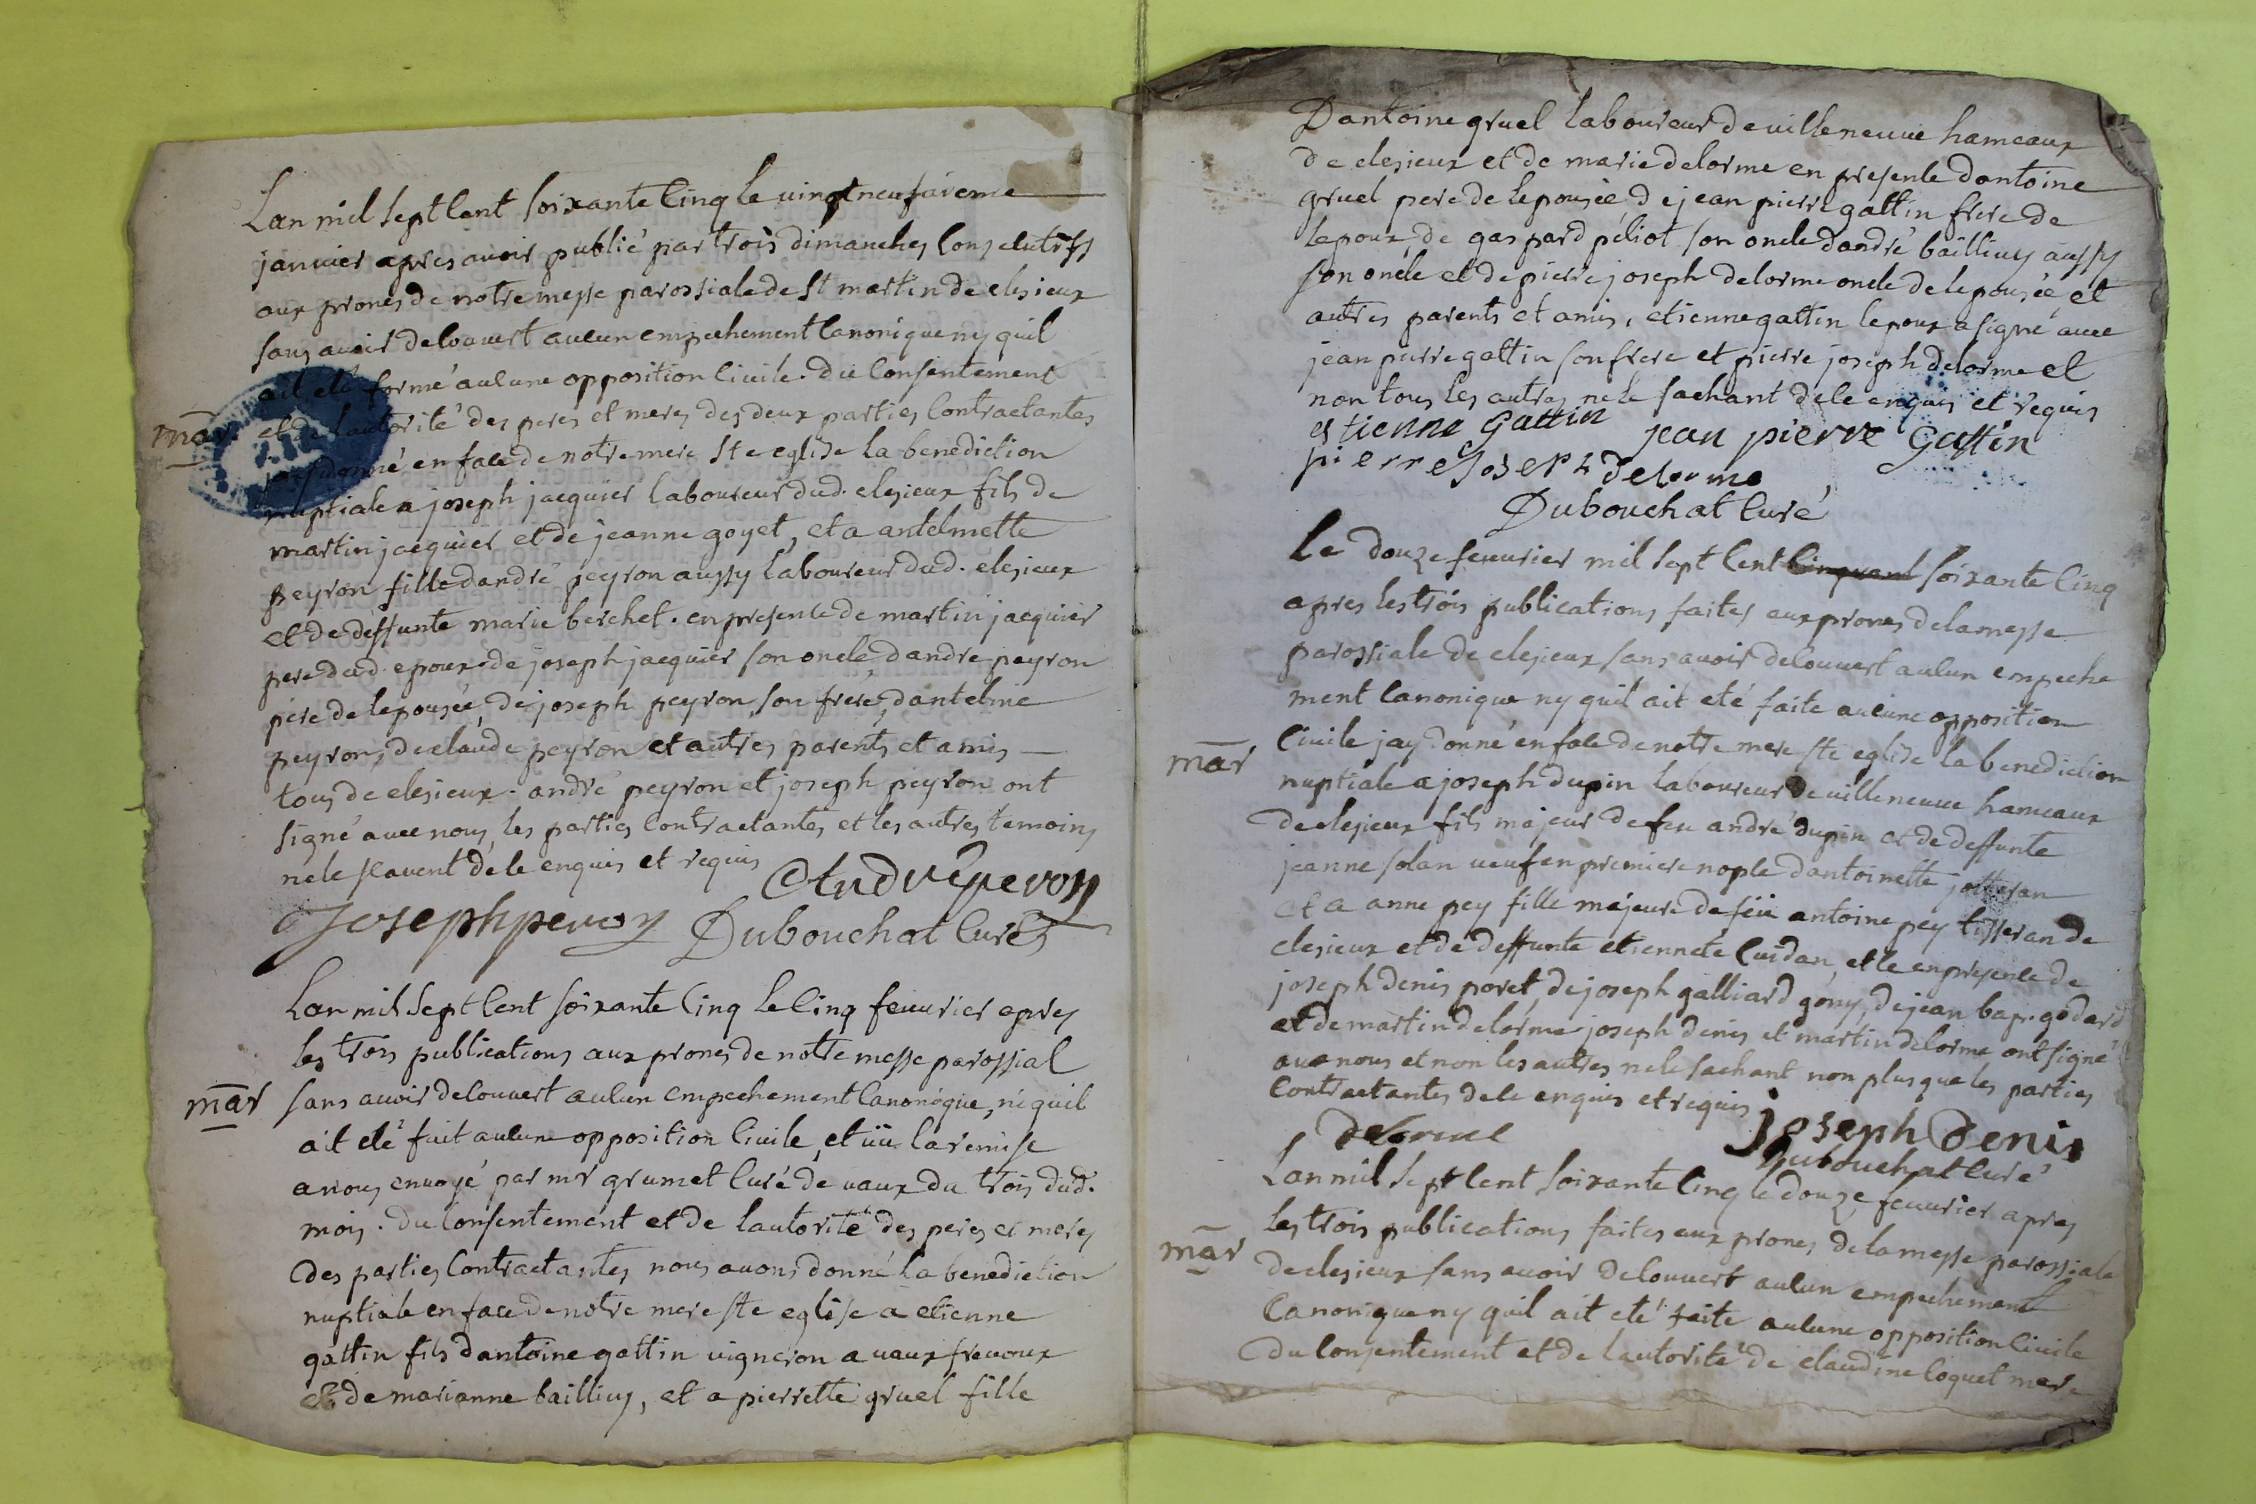 Lan mil sept cent soixante cinq le vingt neufvieme
janvier apres avoir publié par trois dimanches consecutifs
aux prones de notre messe parossiale de St martin de elesieux
sans avoir decouvert aucun empechement canonique ny quil
ait eté formé aucune opposition civile. du consentement
mar
et de lautorité des peres et meres des deux parties contractantes
jay donné en face de notre mere Ste eglise la benediction
nuptiale a joseph jacquier laboureur dud. elesieux fils de
martin jacquier et de jeanne goyet, et a antelmette
peyron fille dandré peyron aussy laboureur dud. elesieux
et de deffunte marie berchet. en presence de martin jacquier
pere dud. epoux de joseph jacquier son oncle, dandre peyron
pere de lepousée, de joseph peyron son frere, dantelme
peyron, de claude peyron et autres parents et amis
tous de elesieux. andré peyron et joseph peyron ont
signé avec nous, les parties contractantes et les autres temoins
ne le scavent de ce enquis et requis
André peron
Joseph peron Dubouchat curé
Lan mil sept cent soixante cinq le cinq fevvrier apres
les trois publications aux prones de notre messe parossial
mar
sans avoir decouvert aucun empechement canonique, ni quil
ait eté fait aucune opposition civile, et vü la remise
a nous envoyé par mr grumet curé de vaux du trois dud.
mois. du consentement et de lautorité des peres et meres
des parties contractantes nous avons donné la benediction
nuptiale en face de notre mere Ste eglise a etienne
gattin fils dantoine gattin vigneron a vaux fevroux
et de marianne baillivy, et a pierrette gruel fille
Dantoine gruel laboureur de villeneuve hameaux
de elesieux et de marie delorme en presence dantoine
gruel pere de lepousée de jean pierre gattin frere de
lepoux, de gaspard péliot son oncle dandré baillivy aussy
son oncle et de pierre joseph delorme oncle de lepousée et
autres parents et amis, etienne gattin lepoux a signé avec
jean pierre gattin son frere et pierre joseph delorme et
non tous les autres ne le sachant de ce enquis et requis
estienne Gattin jean pierre Gattin
pierre Joseph delorme
Dubouchat curé
Le douze fevvrier mil sept cent cinquant soixante cinq
apres les trois publications faites aux prones de la messe
parossiale de elesieux sans avoir decouvert aucun empeche
ment canonique ny quil ait eté faite aucune opposition
mar
civile jay donné en face de notre mere Ste eglise la benediction
nuptiale a joseph dupin laboureur de villeneuve hameaux
de elesieux fils majeur de feu andré dupin et de deffunte
jeanne solan veuf en premiere nopce dantoinette
et a anne pey fille majeure de feü antoine pey tisseran de
elesieux et de deffunte etiennete cuidan, et ce en presence de
joseph denis poret, de joseph galliard gony, de jean bap. godard
et de martin delorme joseph denis et martin delorme ont signé
avec nous et non les autres ne le sachant non plus que les parties
contractantes de ce enquis et requis
delorme joseph Denis
Dubouchat curé
Lan mil sept cent soixante cinq le douze fevvrier apres
les trois publications faites aux prones de la messe parossiale
mar
de elesieux sans avoir decouvert aucun empechement
canonique ny quil ait eté faite aucune opposition civile
du consentement et de lautorité de claudine coquet mere